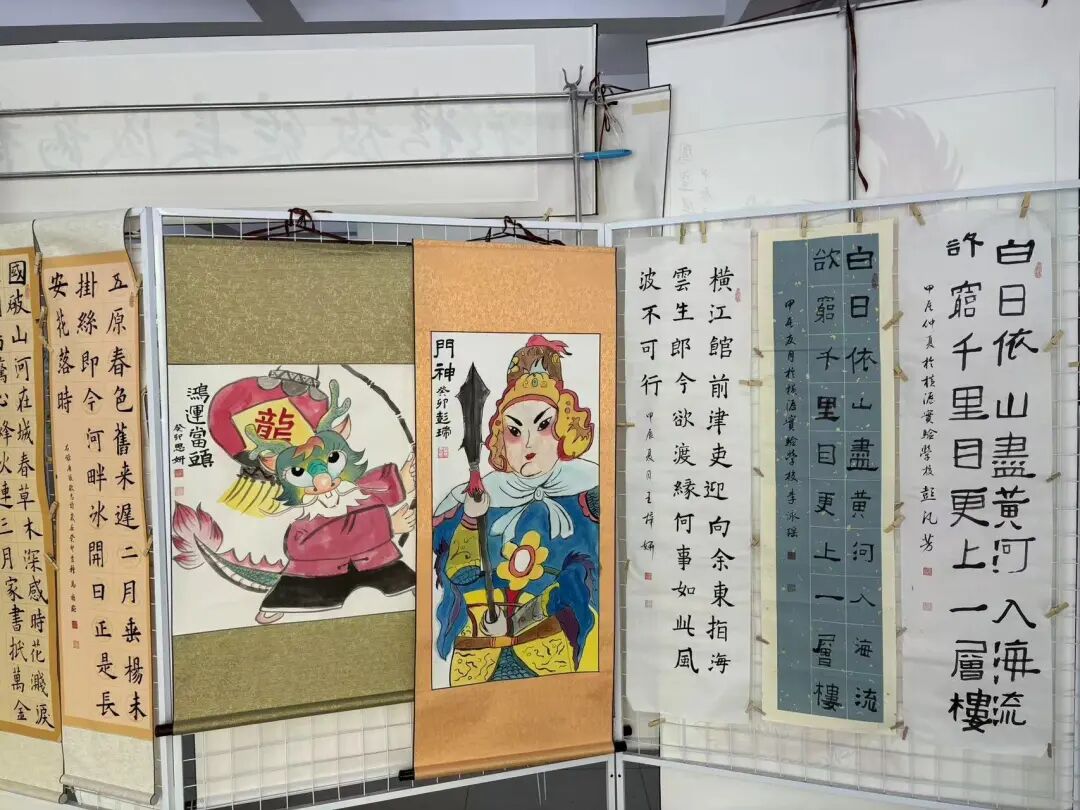 國破山河在城春草木深感時花濺淚
驚心烽火連三月家書抵萬金
五原春色舊来遲二月垂楊未
掛絲即今何畔冰開日正是長
安花落時
鴻運當頭
癸卯思妍
龍
門神
癸卯彭瑞
橫江館前津吏迎向余東指海
雲生郎今欲渡緣何事如此風
波不可行
甲辰夏月王梓妍
白日依山盡黃河入海流
欲窮千里目更上一層樓
實驗學校李泳瑶
白日依山盡黃河入海流
欲窮千里目更上一層樓
甲辰仲夏於橫海實驗學校彭凡芳